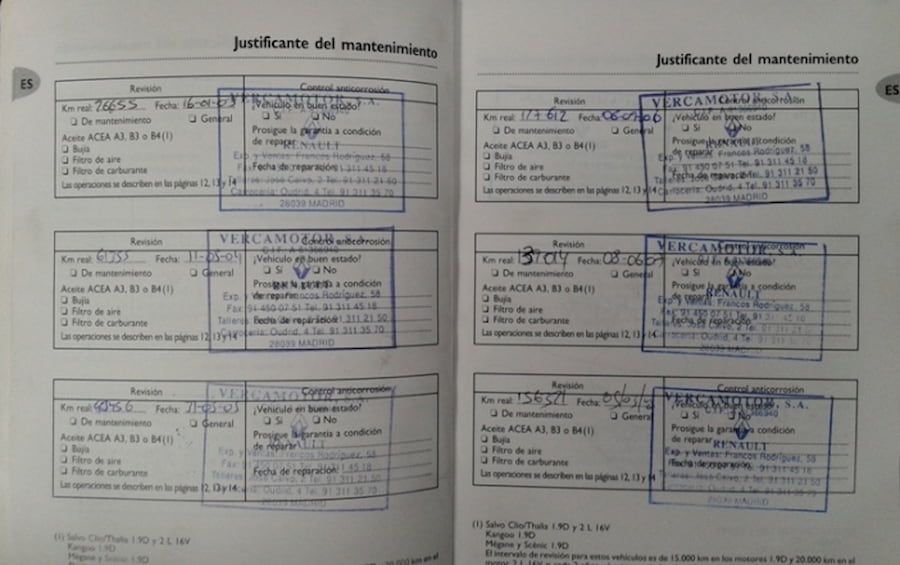 Justificante del mantenimiento
ES
Revisión
Control anticorrosión
Km real: 26655 Fecha: 16-01-03
¿Vehículo en buen estado?
❑ De mantenimiento ❑ General
❑ Sí ❑ No
Aceite ACEA A3, B3 o B4(1)
Prosigue la garantía a condición
❑ Bujía
de reparar
❑ Filtro de aire
❑ Filtro de carburante
Fecha de reparación:
Las operaciones se describen en las páginas 12, 13 y 14
VERCAMOTOR, S.A.
RENAULT
Exp. y Ventas: Francos Rodríguez, 58
Carrocería: Oudrid, 4 Tel. 91 311 35 70
28039 MADRID
Revisión
Control anticorrosión
Km real: 61755 Fecha: 11-05-04
¿Vehículo en buen estado?
❑ De mantenimiento ❑ General
❑ Sí ❑ No
Aceite ACEA A3, B3 o B4(1)
Prosigue la garantía a condición
❑ Bujía
de reparar
❑ Filtro de aire
❑ Filtro de carburante
Fecha de reparación:
Las operaciones se describen en las páginas 12, 13 y 14
VERCAMOTOR, S.A.
Exp. y Ventas: Francos Rodríguez, 58
Fax: 91 450 07 51 Tel. 91 311 45 18
Talleres: José Calvo, 2 Tel. 91 311 21 50
Carrocería: Oudrid, 4 Tel. 91 311 35 70
28039 MADRID
Revisión
Control anticorrosión
Km real: Fecha:
¿Vehículo en buen estado?
❑ De mantenimiento ❑ General
❑ Sí ❑ No
Aceite ACEA A3, B3 o B4(1)
Prosigue la garantía a condición
❑ Bujía
de reparar
❑ Filtro de aire
❑ Filtro de carburante
Fecha de reparación:
Las operaciones se describen en las páginas 12, 13 y 14
VERCAMOTOR, S.A.
RENAULT
Exp. y Ventas: Francos Rodríguez, 58
Talleres: José Calvo, 2 Tel. 91 311 21 50
Carrocería: Oudrid, 4 Tel. 91 311 35 70
28039 MADRID
(1) Salvo Clio/Thalia 1.9D y 2 L 16V
Kangoo 1.9D
Mégane y Scénic 1.9D
Justificante del mantenimiento
ES
Revisión
Control anticorrosión
Km real: 117612 Fecha:
¿Vehículo en buen estado?
❑ De mantenimiento ❑ General
❑ Sí ❑ No
Aceite ACEA A3, B3 o B4(1)
Prosigue la garantía a condición
❑ Bujía
de reparar
❑ Filtro de aire
❑ Filtro de carburante
Fecha de reparación:
Las operaciones se describen en las páginas 12, 13 y 14
VERCAMOTOR, S.A.
Exp. y Ventas: Francos Rodríguez, 58
Fax: 91 450 07 51 Tel. 91 311 45 18
Talleres: José Calvo, 2 Tel. 91 311 21 50
Carrocería: Oudrid, 4 Tel. 91 311 35 70
28039 MADRID
Revisión
Control anticorrosión
Km real: 137014 Fecha:
¿Vehículo en buen estado?
❑ De mantenimiento ❑ General
❑ Sí ❑ No
Aceite ACEA A3, B3 o B4(1)
Prosigue la garantía a condición
❑ Bujía
de reparar
❑ Filtro de aire
❑ Filtro de carburante
Fecha de reparación:
Las operaciones se describen en las páginas 12, 13 y 14
VERCAMOTOR, S.A.
RENAULT
Exp. y Ventas: Francos Rodríguez, 58
28039 MADRID
Revisión
Control anticorrosión
Km real: 156521 Fecha:
¿Vehículo en buen estado?
❑ De mantenimiento ❑ General
❑ Sí ❑ No
Aceite ACEA A3, B3 o B4(1)
Prosigue la garantía a condición
❑ Bujía
de reparar
❑ Filtro de aire
❑ Filtro de carburante
Fecha de reparación:
Las operaciones se describen en las páginas 12, 13 y 14
VERCAMOTOR, S.A.
RENAULT
Exp. y Ventas: Francos Rodríguez, 58
28039 MADRID
(1) Salvo Clio/Thalia 1.9D y 2 L 16V
Kangoo 1.9D
Mégane y Scénic 1.9D
El intervalo de revisión para estos vehículos es de 15.000 km en los motores 1.9D y 20.000 km en el